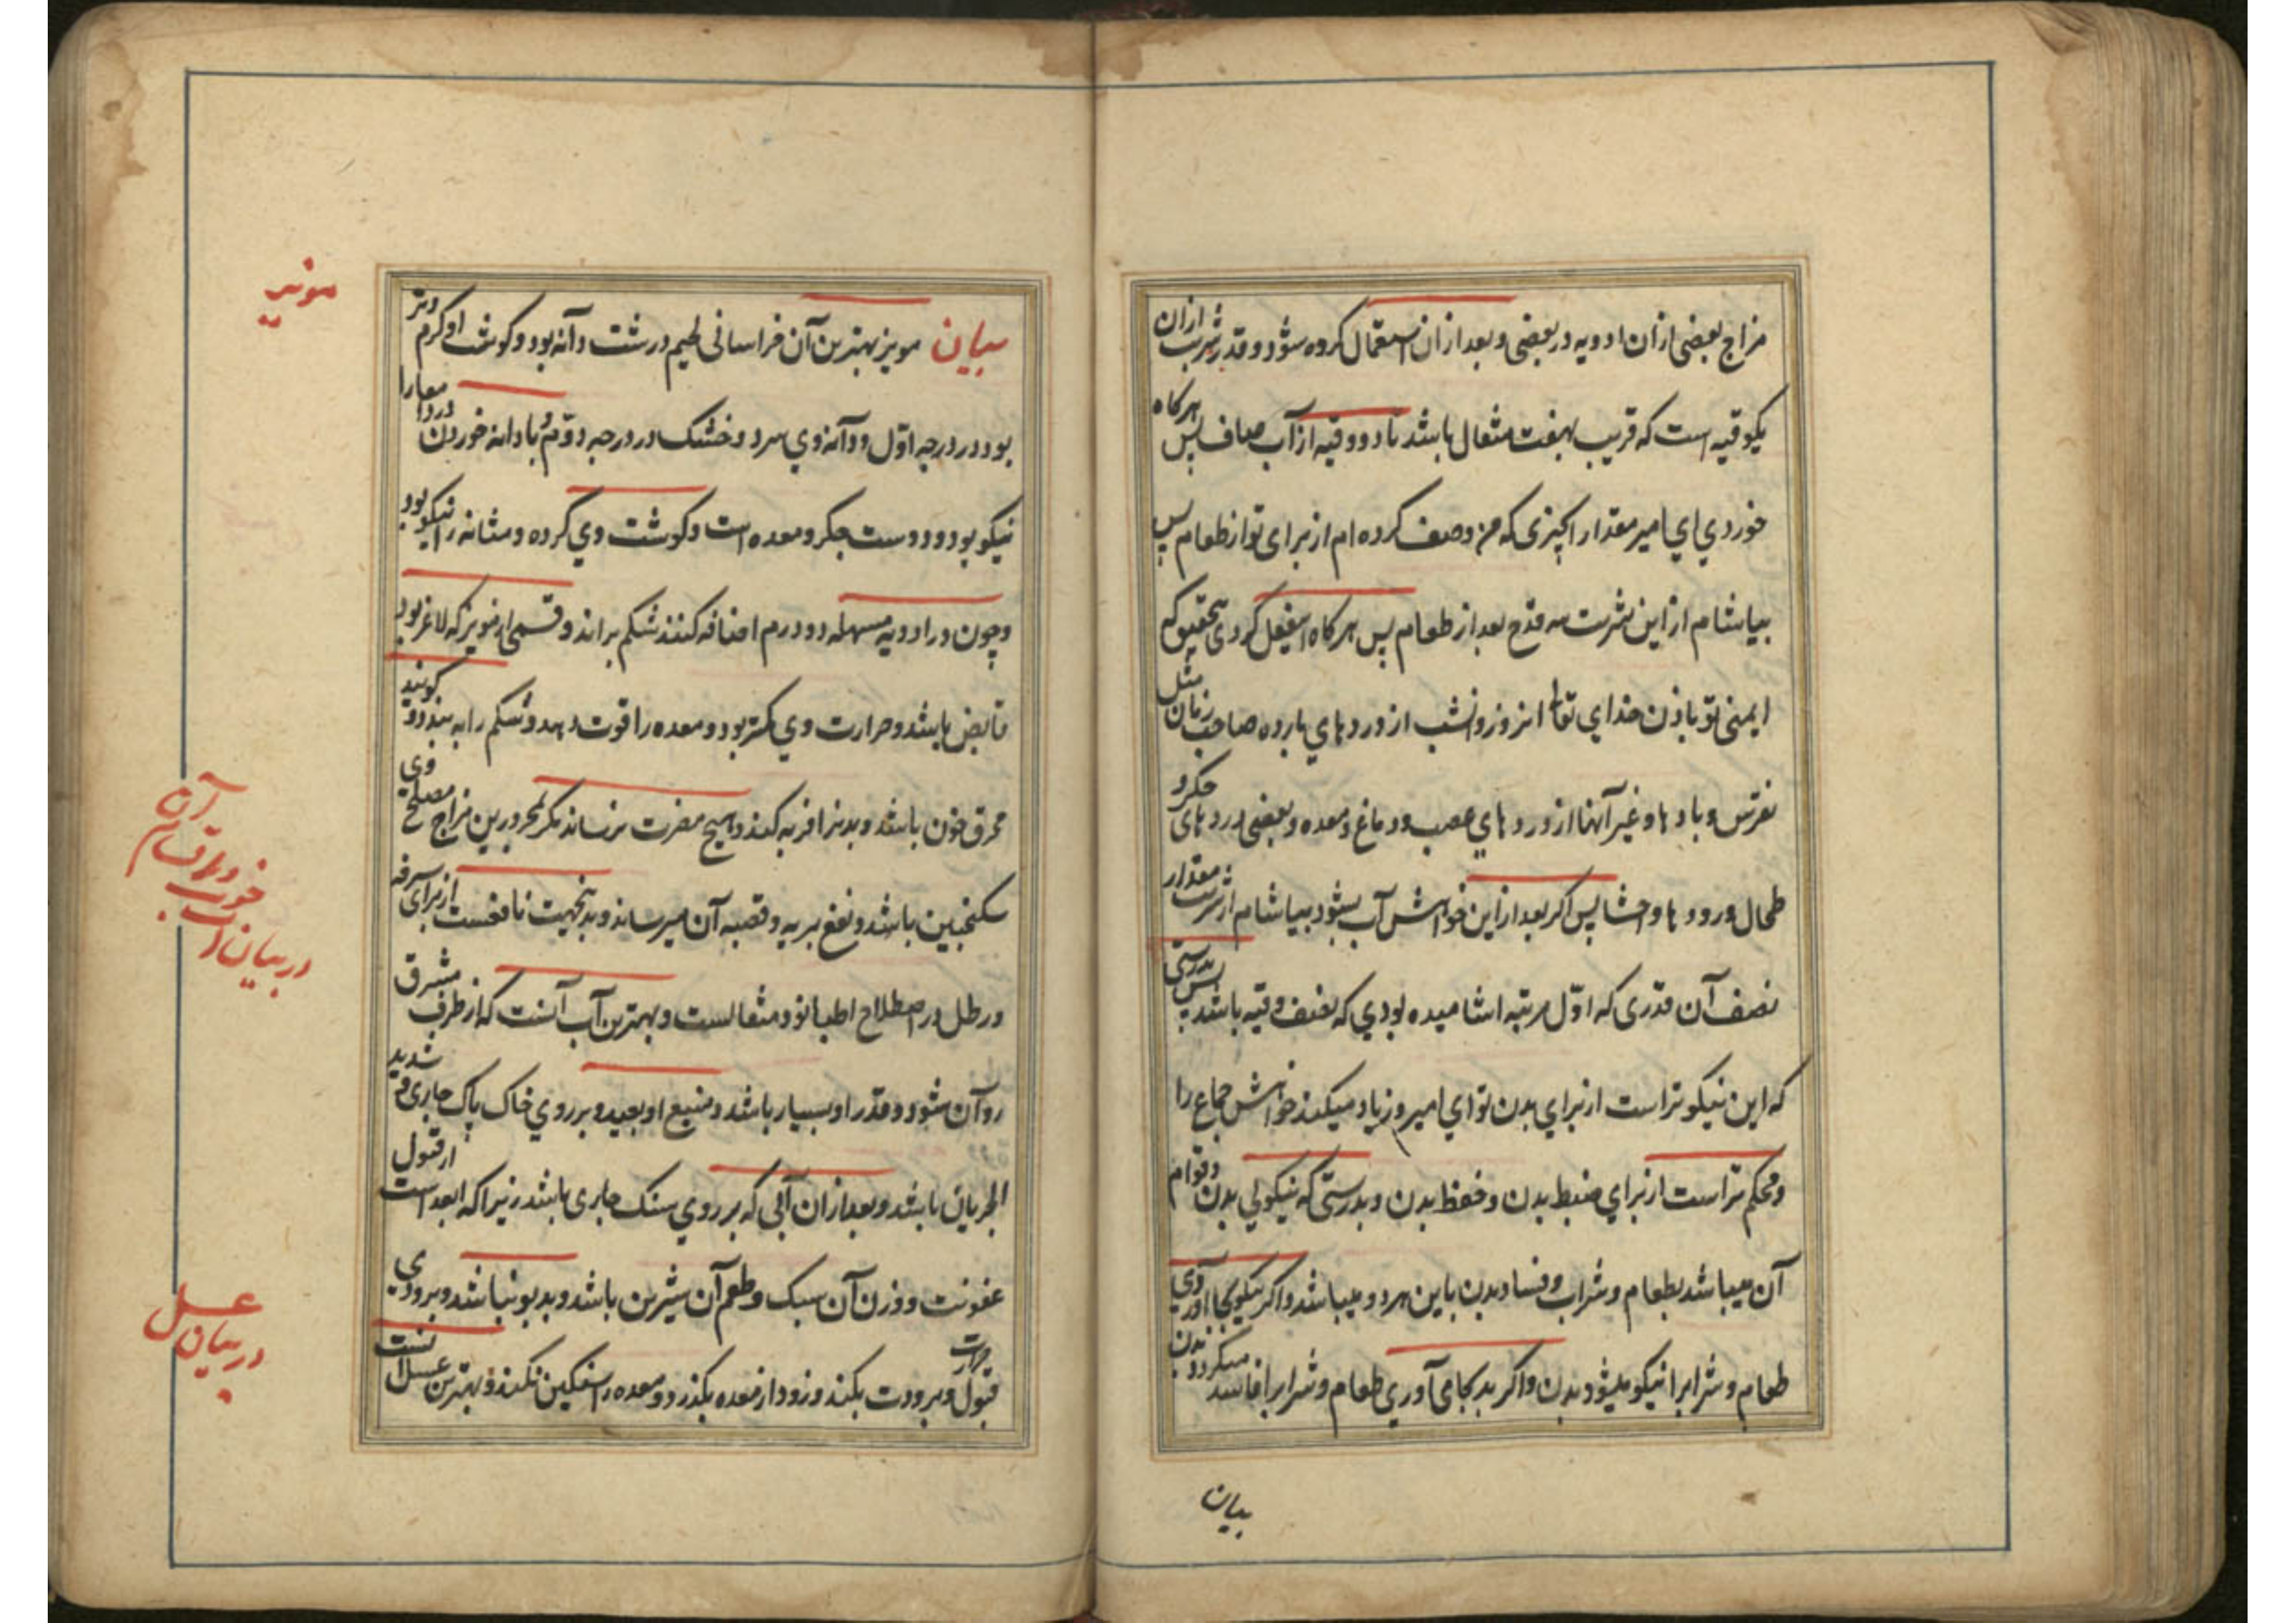 مزاج بعضی ازان ادویه در بعضی و بعد ازان استعمال کرده شود و قدر شربت ازان
یکوقیه است که قریب بهفت مثقال باشد تا دو وقیه از آب صاف پس هرکاه
خوردی ای امیر مقدار اچیزی که من وصف کرده ام از برای تو از طعام پس
بیاشام از این شربت سه قدح بعد از طعام پس هرکاه اینفعل کردی بتحقیق که
ایمنی تو باذن خدای تعالی امروز و شب از دردهای بارده صاحب زمان مثل
نقرس و بادها و غیر آنها از دردهای عصب و دماغ و معده و بعضی دردهای جکر و
طحال و روده ها و احشا پس اکر بعد از این خواهش آب بشود بیاشام از شربت مقدار
نصف آن قدری که اول مرتبه اشامیده بودی که نصف وقیه باشد پس بدرستی
که این نیکوتر است از برای بدن تو ای امیر و زیاد میکند خواهش جماع را
و محکم تر است از برای ضبط بدن و حفظ بدن و بدرستی که نیکوئی بدن و قوام
آن میباشد بطعام و شراب و فساد بدن باین هردو میباشد و اکر نیکو بجا آوری
طعام و شراب را نیکو میشود بدن و اکر بد بجا می آوری طعام و شراب را فاسد میکردد بدن
بیان
بیان مویز بهترین آن خراسانی لحیم درشت دانه بود و کوشت او کرم و تر
بود در درجه اول و دانه وی سرد و خشک در درجه دوم با دانه خوردن درد معا را
نیکو بود و دوست جکر و معده است و کوشت وی کرده و مثانه را نیکو بود
و چون در ادویه مسهله دو درم اضافه کنند شکم براند و قسمی از مویز که لاغر بود
قابض باشد و حرارت وی کمتر بود و معده را قوت دهد و شکم را به بندد و کویند
محرق خون باشد و بدنرا فربه کند و هیچ مضرت نرساند مکر بمحرورین مزاج مصلح وی
سکنجبین باشد و نفع بریه و قصبه آن میرساند و بدینجهت نافعست از برای سرفه
و رطل در اصطلاح اطبا نود مثقالست و بهترین آب آنست که از طرف مشرق
روان شود و قدر او بسیار باشد و منبع او بعید و بر روی خاک پاک جاری و شدید
الجریان باشد و بعد ازان آبی که بر روی سنک جاری باشد زیرا که ابعد است از قبول
عفونت و وزن آن سبک و طعم آن شیرین باشد و بدبو نباشد و بزودی
قبول حرارت و برودت بکند و زود از معده بکذرد و معده را سنکین نکند و بهترین عسل آنست
مویز
در بیان آب خوب و اقسام آن
در بیان عسل